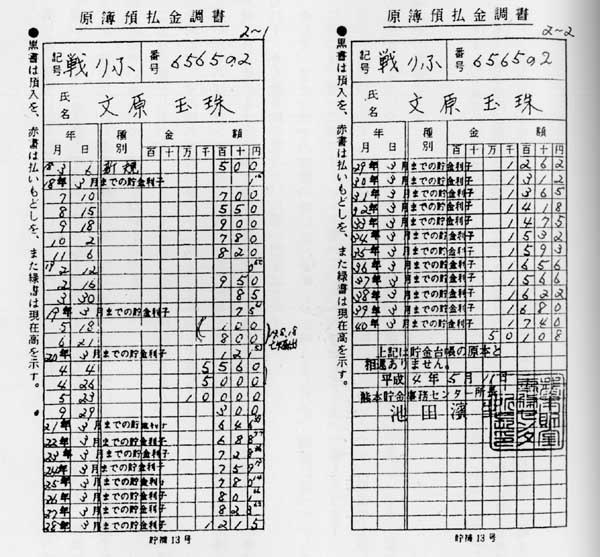 原簿預払金調書
2～1
●黒書は預入を、赤書は払いもどしを、また緑書は現在高を示す。
記号 戦りふ 番号 656502
氏名 文原玉珠
年月日 種別 金額
百十万千百十円
18 3 6 新規 500
18年3月までの貯金利子
7 10 700
8 15 550
9 18 900
10 2 780
11 6 820
19
2 12
2 16 950
3 30 85
19年3月までの貯金利子 75
5 18 100
6 21 800
20年3月までの貯金利子 121
4 4 5560
4 26 5000
5 23 10000
9 29 300
21年3月までの貯金利子 646
22年3月までの貯金利子 688
23年3月までの貯金利子 728
24年3月までの貯金利子 759
25年3月までの貯金利子 780
26年3月までの貯金利子 801
27年3月までの貯金利子 823
28年3月までの貯金利子 1215
貯補13号
原簿預払金調書
2～2
●黒書は預入を、赤書は払いもどしを、また緑書は現在高を示す。
記号 戦りふ 番号 656502
氏名 文原玉珠
年月日 種別 金額
百十万千百十円
29年3月までの貯金利子 1262
30年3月までの貯金利子 1312
31年3月までの貯金利子 1365
32年3月までの貯金利子 1418
33年3月までの貯金利子 1475
34年3月までの貯金利子 1532
35年3月までの貯金利子 1593
36年3月までの貯金利子 1656
37年3月までの貯金利子 1566
38年3月までの貯金利子 1622
39年3月までの貯金利子 1680
40年3月までの貯金利子 1740
50108
上記は貯金台帳の原本と
相違ありません。
平成4年5月11日
熊本貯金事務センター所長
池田濱
貯補13号